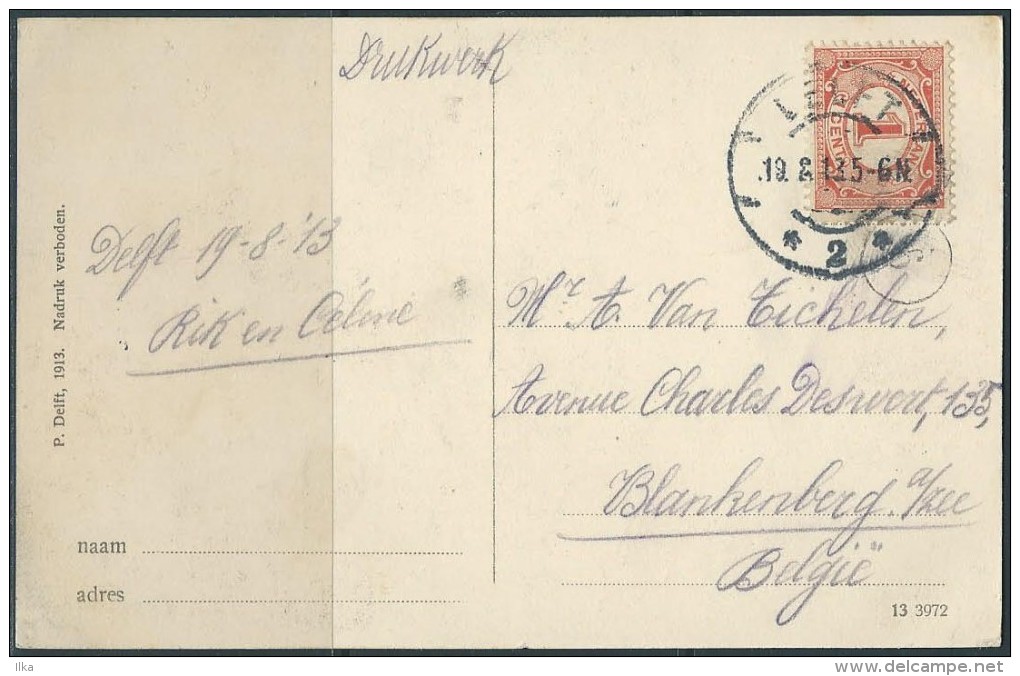 Drukwerk
NEDERLAND
1
CENT
DELFT
19. 8. 13 5-6 N.
* 2 *
P. Delft, 1913. Nadruk verboden.
Delft 19-8-'13
Rik en Céline
Mr A. Van Eichelen,
Avenue Charles Deswert, 135,
Blankenberg a/zee
België
naam
adres
13 3972
Ilka
www.delcampe.net